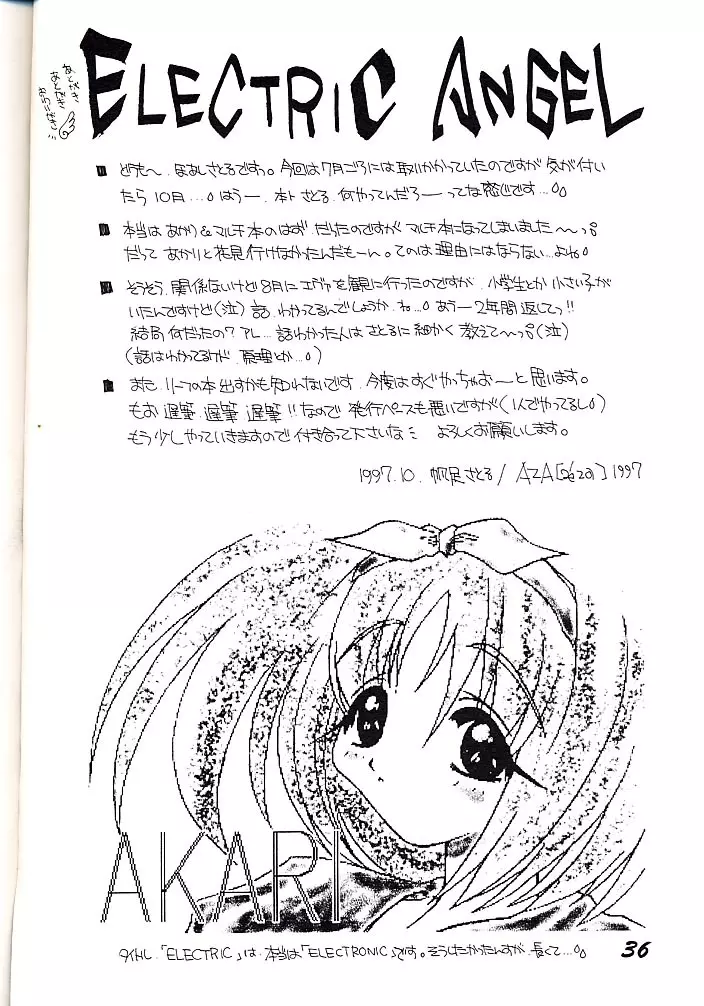 ELECTRIC ANGEL
あとがき
あとがき
■ どうもー、ほあしさとるですっ。今回は7月ごろには取りかかっていたのですが 気が付い
たら10月…。はうー、本ト さとる、何やってんだろーってな感じです…。
■ 本当は あかり&マルチ本のはず だったのですが マルチ本になってしまいました〜っ。
だって あかりと花見行けなかったんだもーん。てのは理由にはならない…よね。
■ そうそう、関係ないけど8月にエヴァを観に行ったのですが、小学生とか小さい子が
いたんですけど(泣)話、わかってるんでしょうか、ね…。あうー2年間返してっ!!
結局、何だったの?アレ…話わかった人は さとるに細かく教えて〜っ。(泣)
(話はわかってるけど、原理とか…。)
■ また リーフの本出すかも知れないです、今度はすぐやっちゃおーと思います。
もお 遅筆、遅筆、遅筆!!なので 発行ペースも悪いですが(1人でやってるし。)
もう少しやっていきますので付き合って下さいな よろしくお願いします。
1997.10. 帆足さとる/ AZA 1997
AKARI
タイトル「ELECTRIC」は、本当は「ELECTRONIC」です。そうしたかったんすが、長くて…。
36